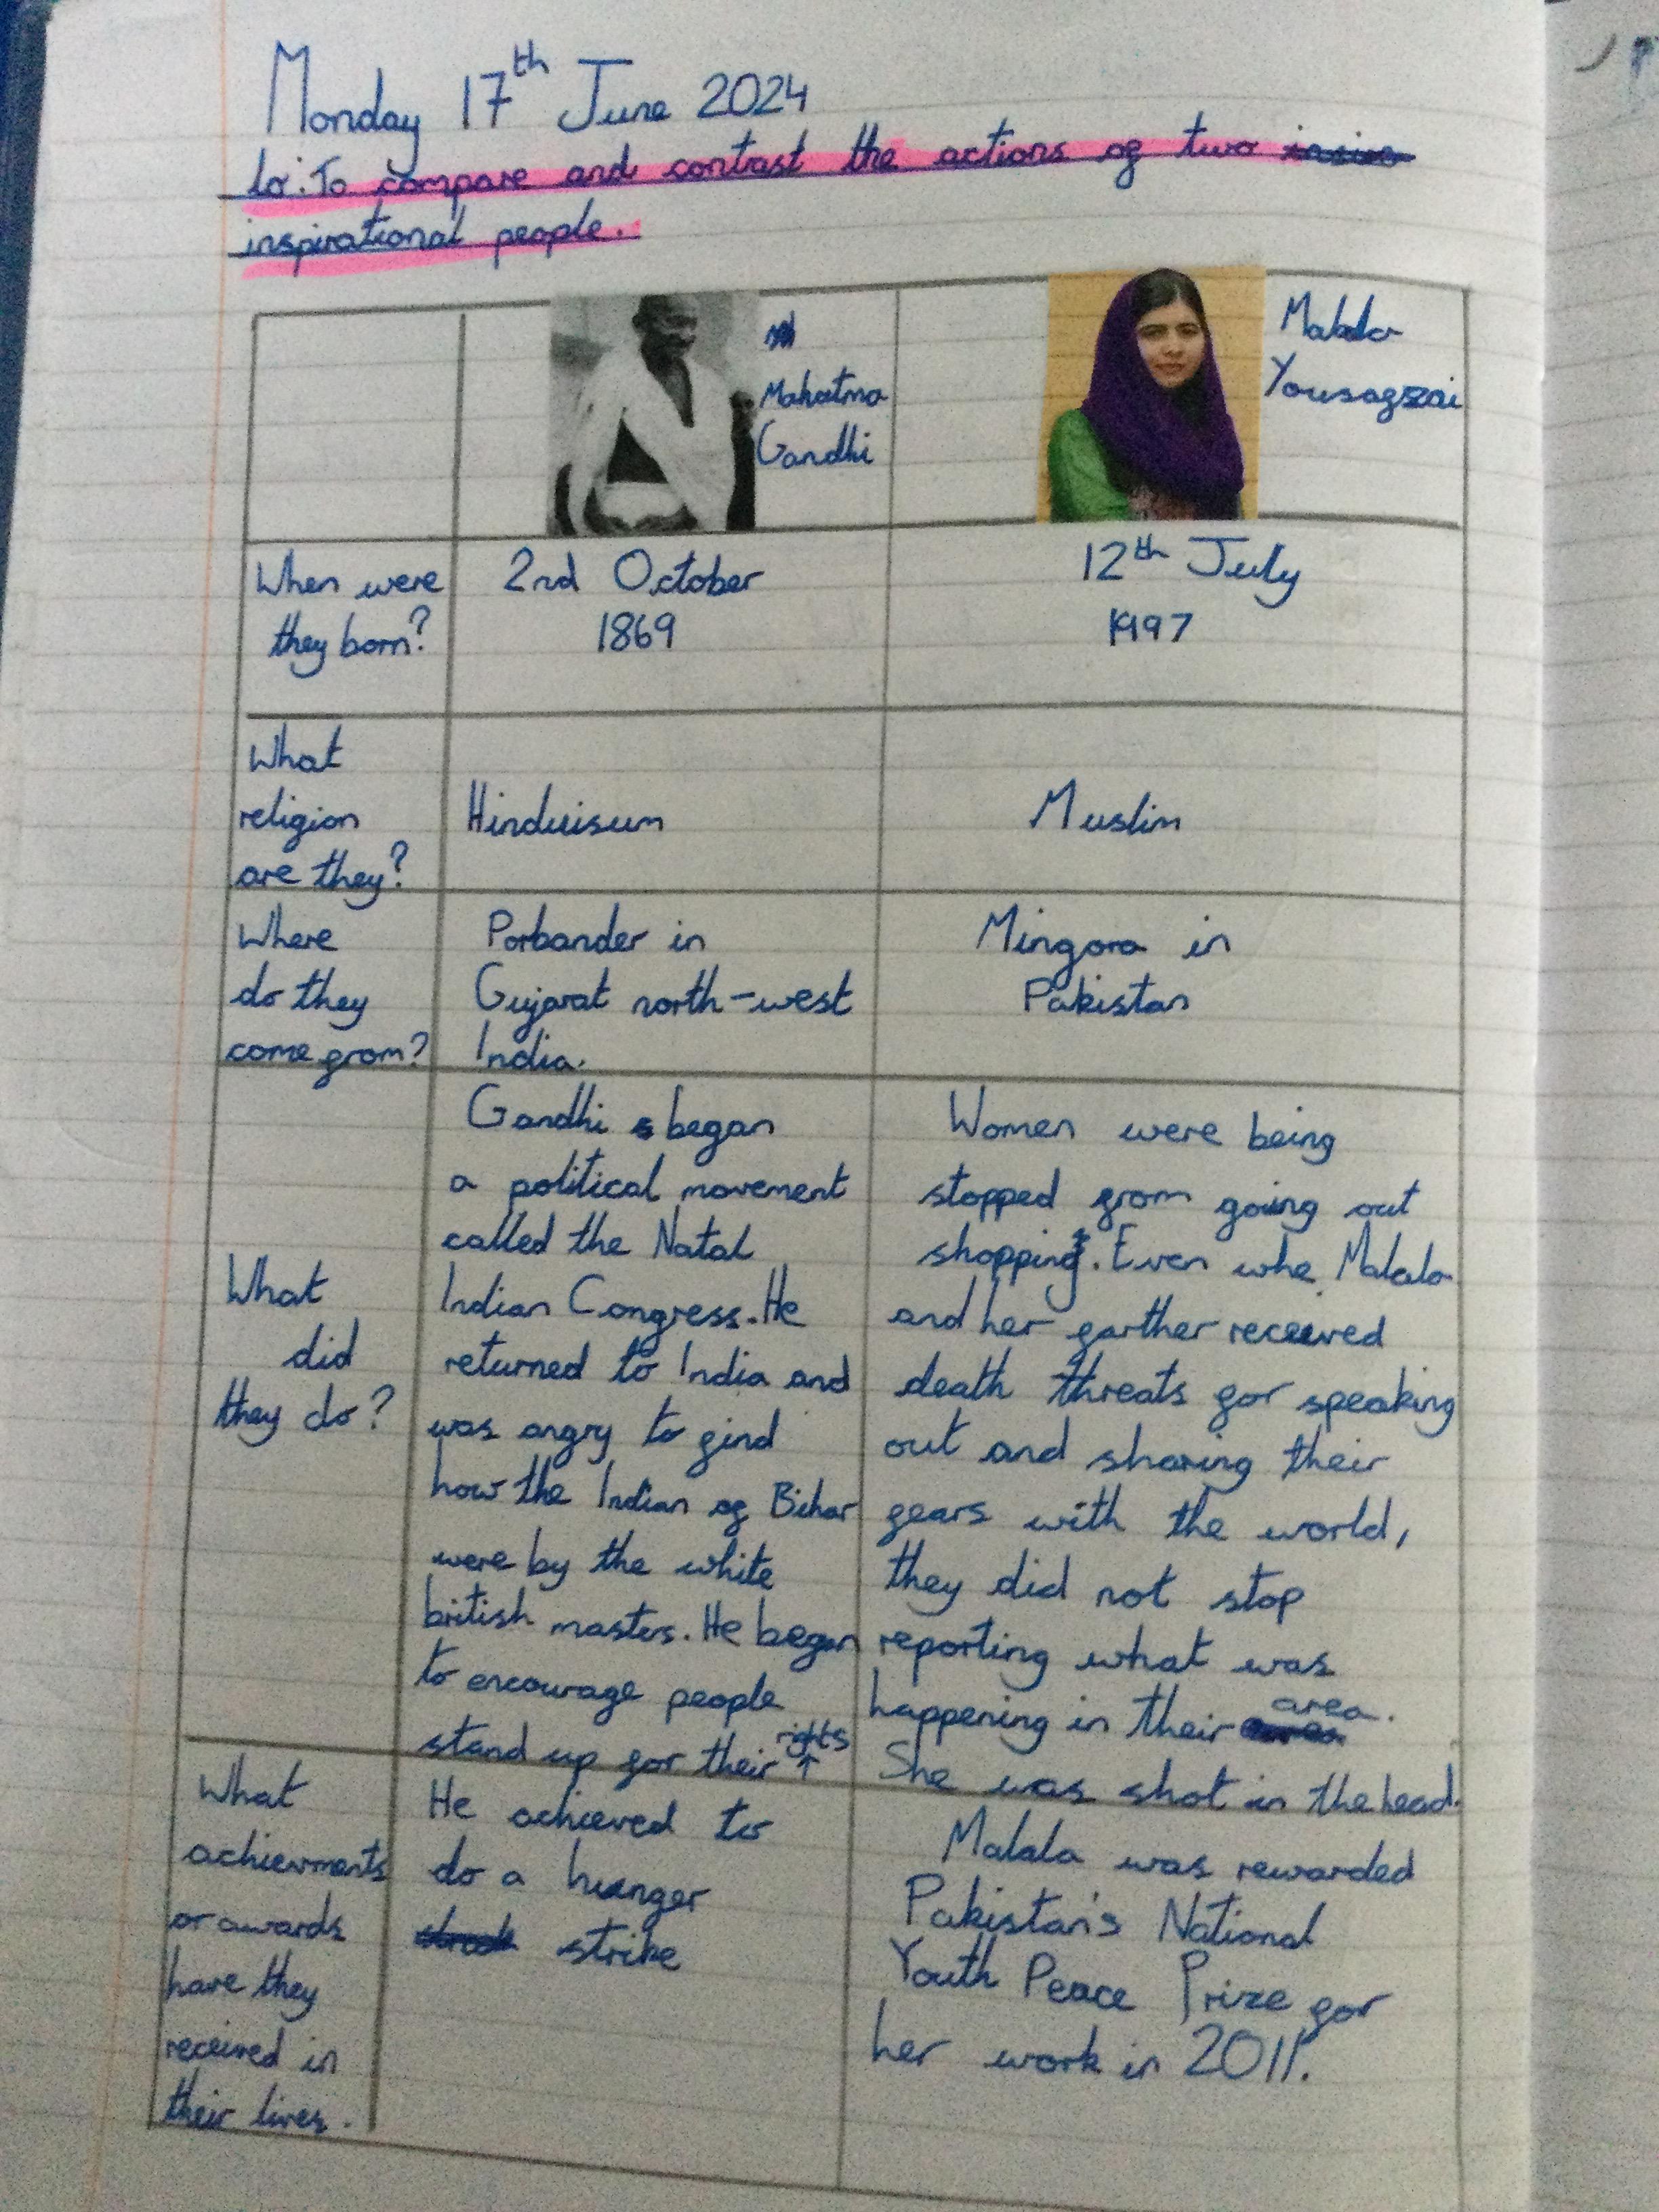 Monday 17th June 2024
Lo: To compare and contrast the actions of two
inspirational people.
Mahatma
Gandhi
Malala
Yousafzai
When were
they born?
2nd October
1869
12th July
1997
What
religion
are they?
Hinduisum
Muslim
Where
do they
come from?
Porbander in
Gujarat north-west
India.
Mingora in
Pakistan
What
did
they do?
Gandhi began
a political movement
called the Natal
Indian Congress. He
returned to India and
was angry to find
how the Indian of Bihar
were by the white
british masters. He began
to encourage people
stand up for their rights
Women were being
stopped from going out
shopping. Even whe Malala
and her farther received
death threats for speaking
out and sharing their
fears with the world,
they did not stop
reporting what was
happening in their area.
She was shot in the head.
What
achievments
or awards
have they
received in
their lives.
He achieved to
do a hunger
strike
Malala was rewarded
Pakistan's National
Youth Peace Prize for
her work in 2011.